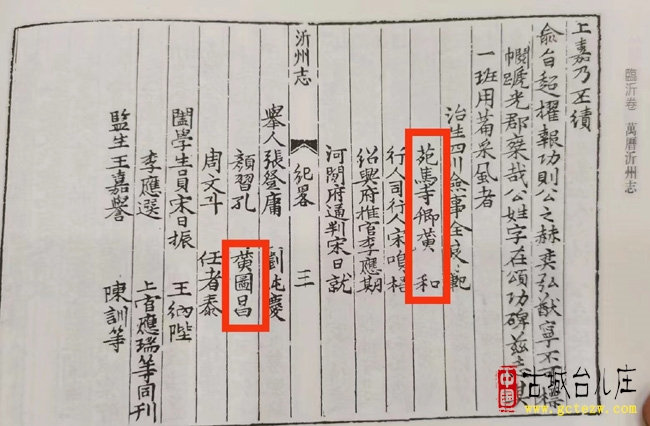 上嘉乃丕績
俞台超擢報功則公之赫奕弘猷寧不
標
幗號光郡乘哉公姓字在頌功碑茲
一班用蒭采風者
治生四川僉事全良範
苑馬寺卿黃 和
行人司行人宋鳴梧
紹興府推官李應期
河間府通判宋日就
沂州志
紀畧
三
舉人張登庸 劉 慶
顏習孔 黃圖昌
周文斗 任者泰
闔學生員宋日振 王納陛
李應選 上官應瑞等同刊
監生王嘉譽 陳訓等
臨沂卷 萬曆沂州志
中國 古城台儿庄
www.gctezw.com